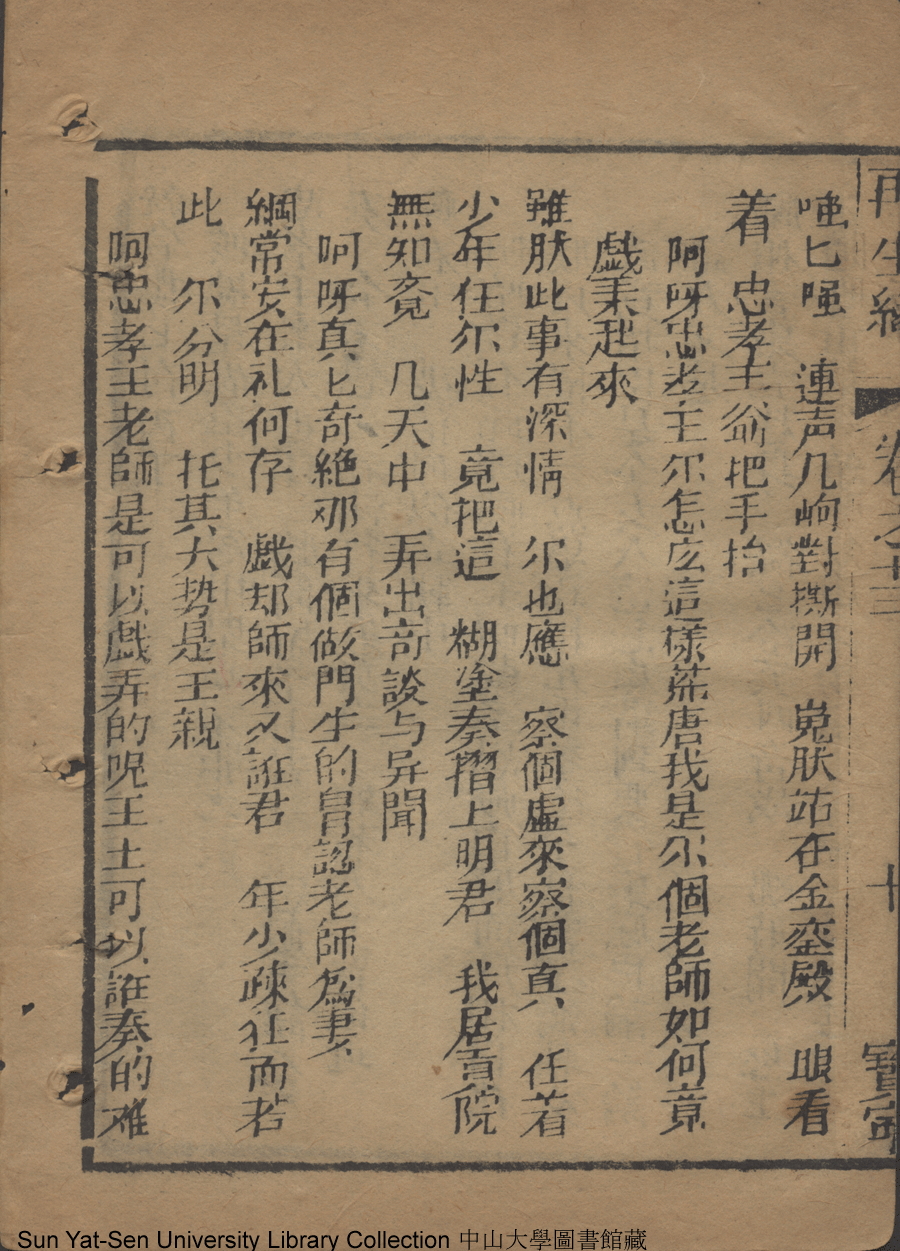 再生緣 卷之十三 十 寶寧
嗤匕嗤 連声几峋對撕開 嵬肰站在金鑾殿 眼看
着 忠孝王爺把手抬
阿呀忠孝王尔怎庅這樣荒唐我是尔個老師如何竟
戲耒起來
雖肰此事有深情 尔也應 察個虛來察個真 任着
少年任尔性 竟把這 糊塗奏摺上明君 我居盲院
無知竟 几天中 弄出奇談与异聞
呵呀真匕奇絶那有個做門生的冒認老師為妻
綱常安在礼何存 戲却師來又誑君 年少疎狂而若
此 尔分明 托其大势是王親
呵忠孝王老師是可以戲弄的呢王土可以誑奏的难
Sun Yat-Sen University Library Collection 中山大學圖書館藏